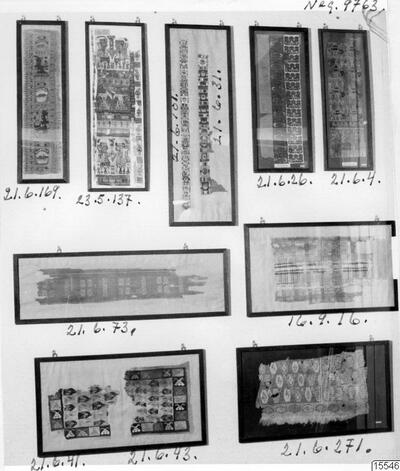 Neg. 9763.
21.6.169.
23.5.137.
21.6.131.
21.6.31.
21.6.26.
21.6.4.
21.6.73.
16.9.16.
21.6.41.
21.6.43.
21.6.271.
15546